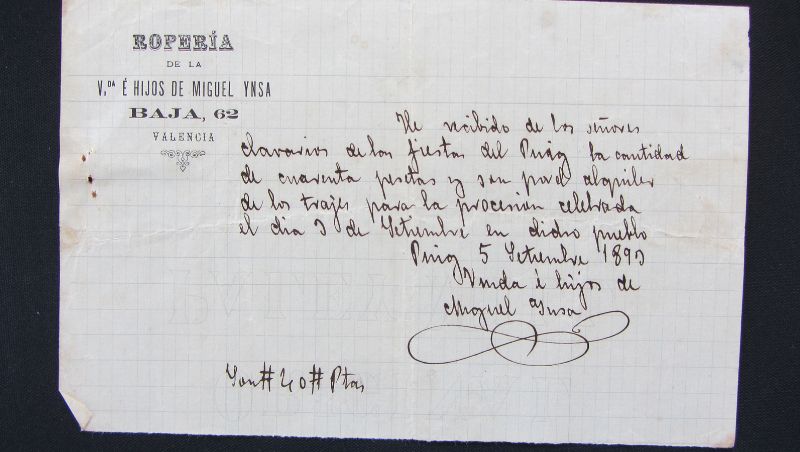 ROPERÍA
DE LA
V.DA É HIJOS DE MIGUEL YNSA
BAJA, 62
VALENCIA
He recibido de los señores
clavarios de las fiestas del Puig la cantidad
de cuarenta pesetas y son por el alquiler
de los trajes para la procesion celebrada
el dia 3 de Setiembre en dicho pueblo
Puig 5 Setiembre 1893
Viuda é hijos de
Miguel Ynsa
Son # 40 # Ptas